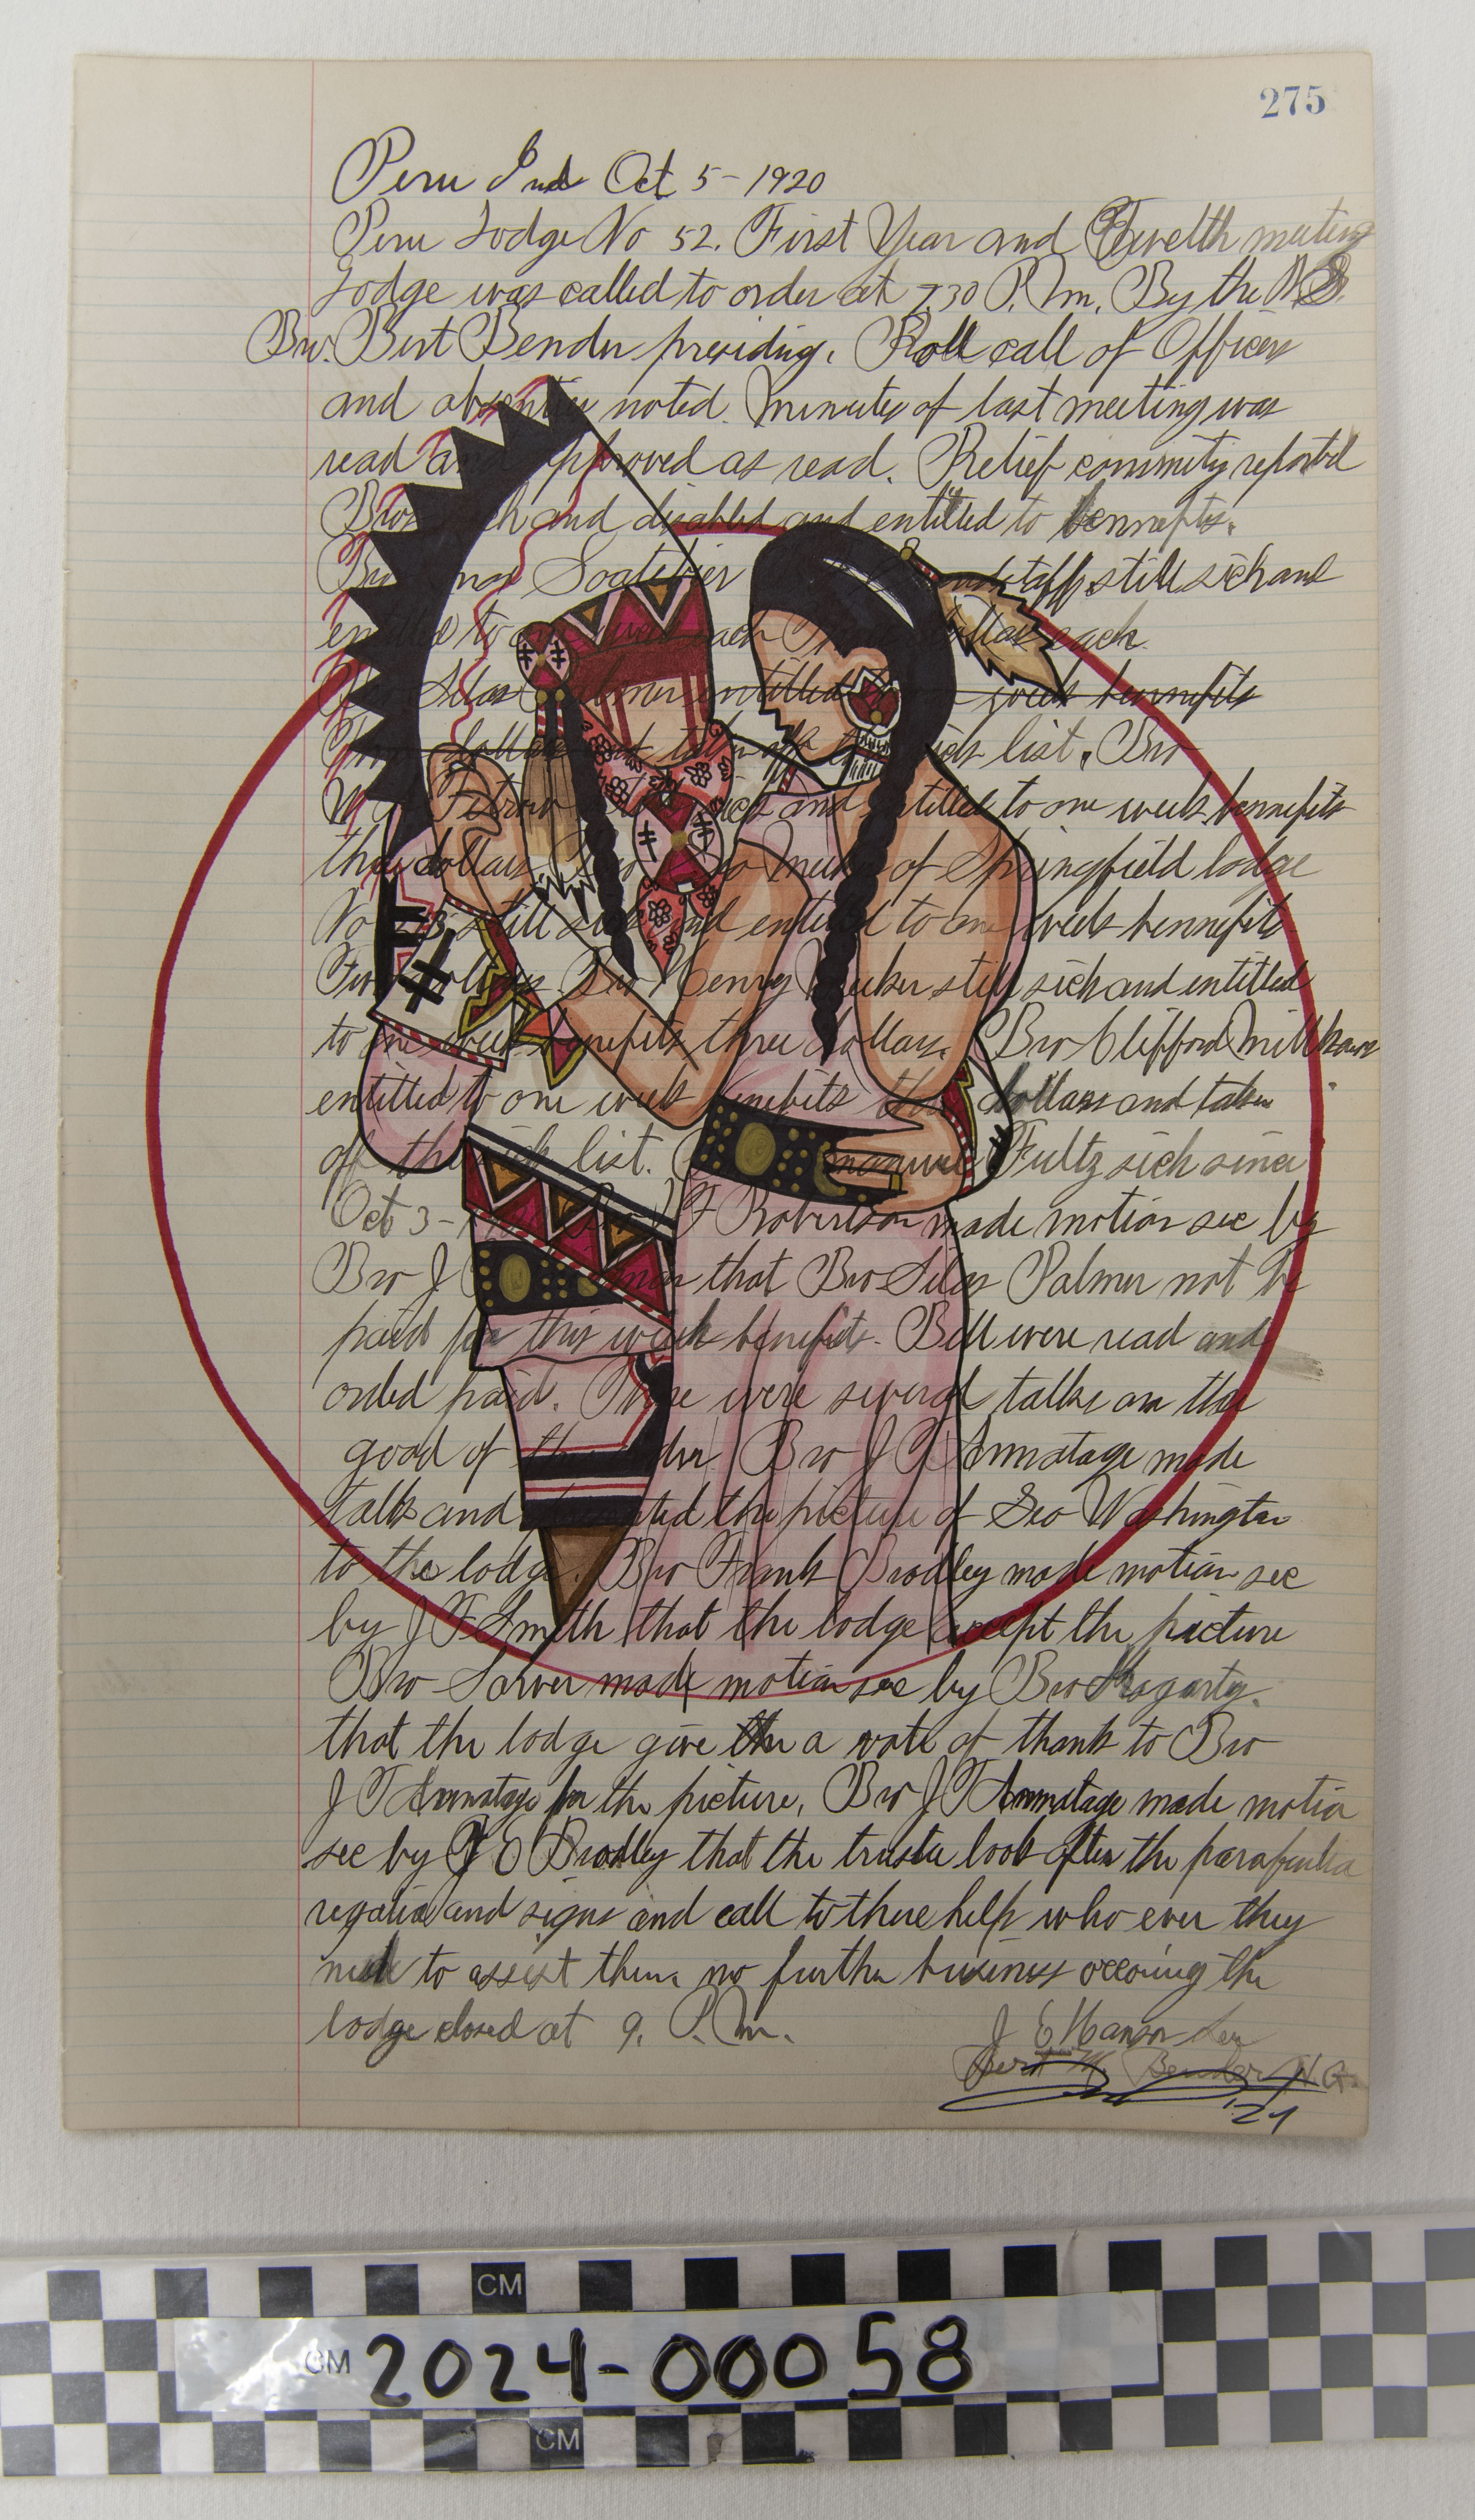 275
Peru Ind Oct 5 - 1920
Peru Lodge No 52. First Year and Twelth meeting
Lodge was called to order at 7.30 P.m. By the
Bro. Bert Bender presiding. Roll call of Officers
and absenties noted. minutes of last meeting was
read and approved as read. Relief committy reported
Bros sick and disabled and entitled to bennefits.
still sick and
each
Bro Silas Palmer entitled week bennefits
sick list. Bro
and entitled to one weeks bennefits
three dollars. of Springfield lodge
No still sick and entitled to one weeks bennefits
dollars. Bro Henry still sick and entitled
to one weeks benefits three dollars. Bro Clifford
entitled to one weeks benefits three dollars and taken
off the sick list. Fultz sick since
Oct 3 - Robertson made motion sec by
Bro J that Bro Silas Palmer not be
paid for this week benefits. Bill were read and
orded paid. There were several talks on the
good of the order. Bro J T Armatage made
talk and the picture of Geo Washington
to the lodge. Bro Frank Bradley made motion sec
by J F Smith that the lodge accept the picture
Bro Sarver made motion sec by Bro Hagarty.
that the lodge give the a vote of thank to Bro
J T Armatage for the picture. Bro J T Armatage made motion
see by J E Bradley that the trustee look after the
regalia and signs and call to there help who ever they
to assist them. no further business the
lodge closed at 9. P.m.
J E Hanson Sec
Bert M. Bender N.G.
'24
CM
CM 2024-00058
CM